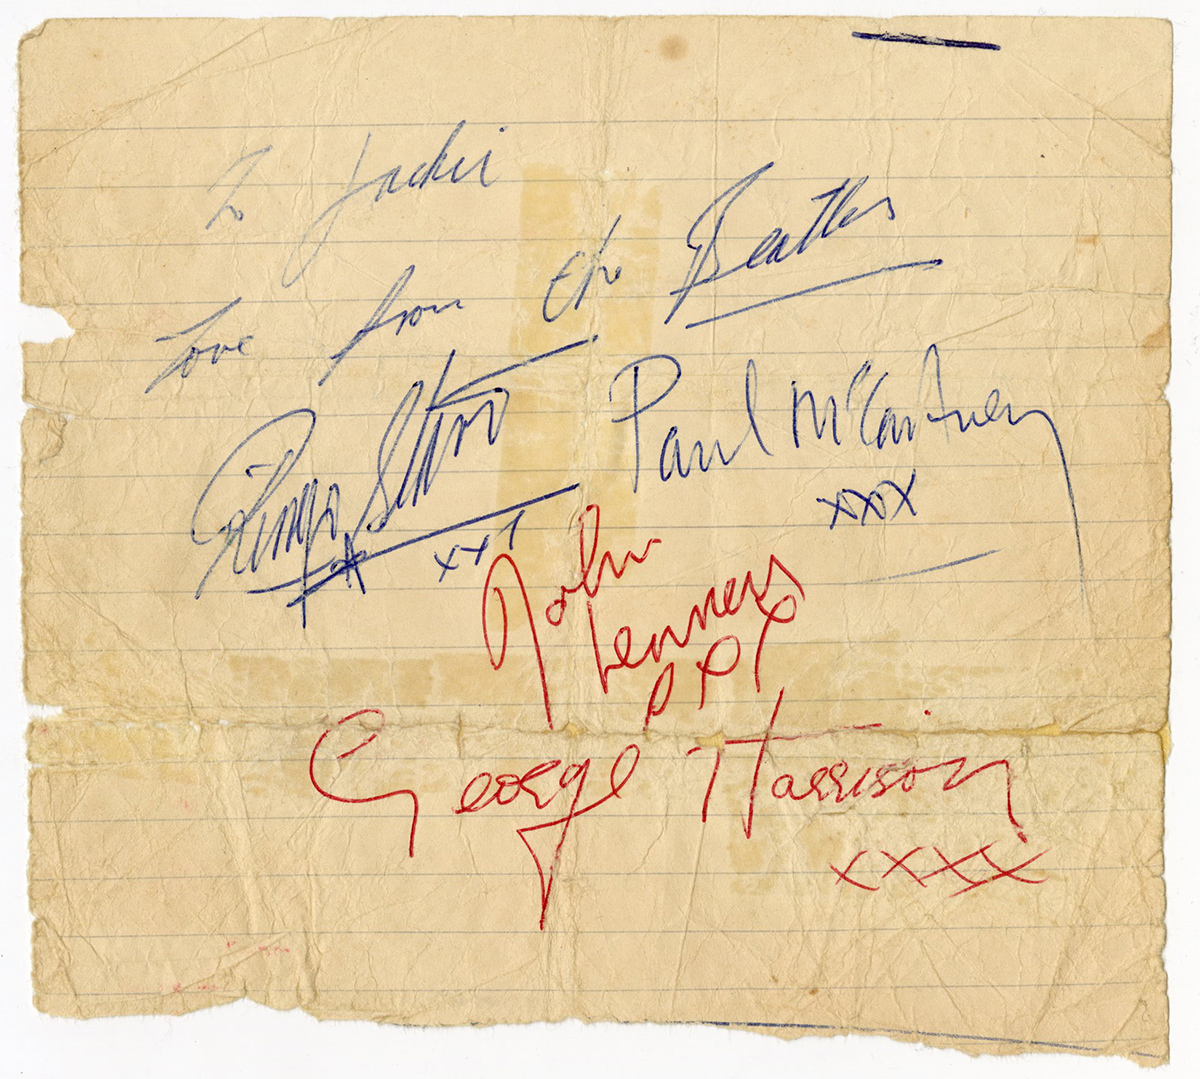 To Jackie
Love from the Beatles
Ringo Starr xxx
Paul McCartney
xxx
John
Lennon
xxx
George Harrison
xxxx